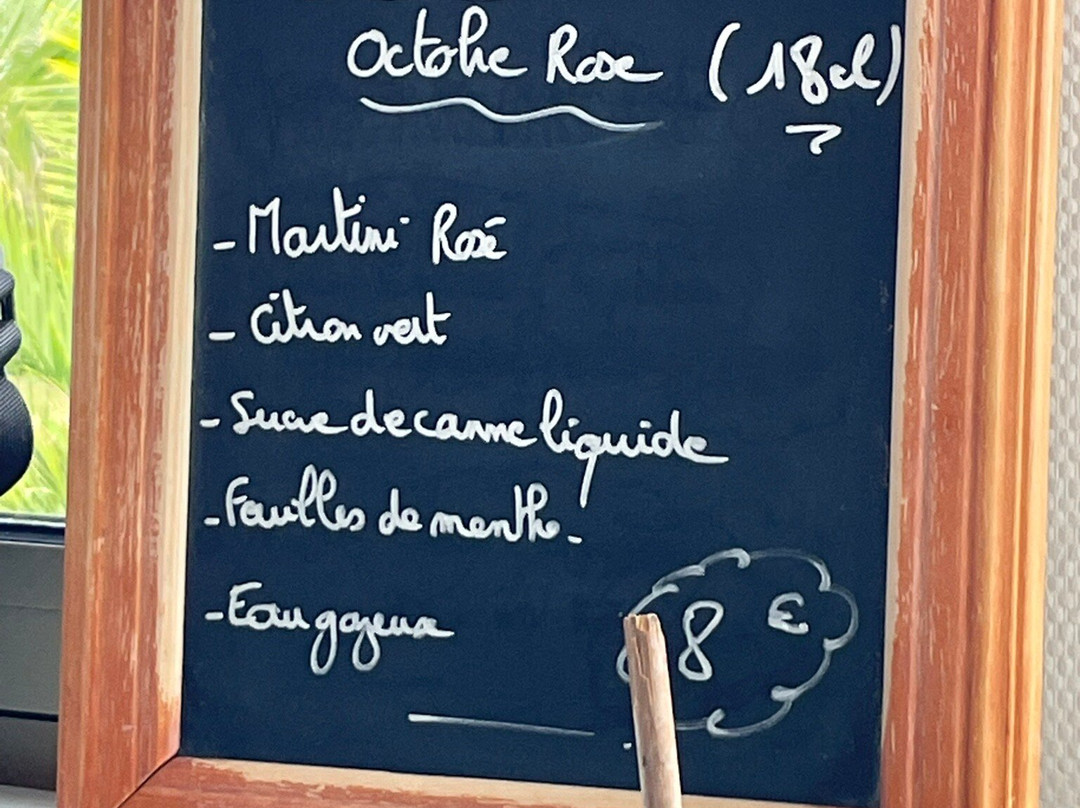 Octobre Rose (18cl)
- Martini Rosé
- Citron vert
- Sucre de canne liquide
- Feuilles de menthe.
- Eau gazeuse
8 €